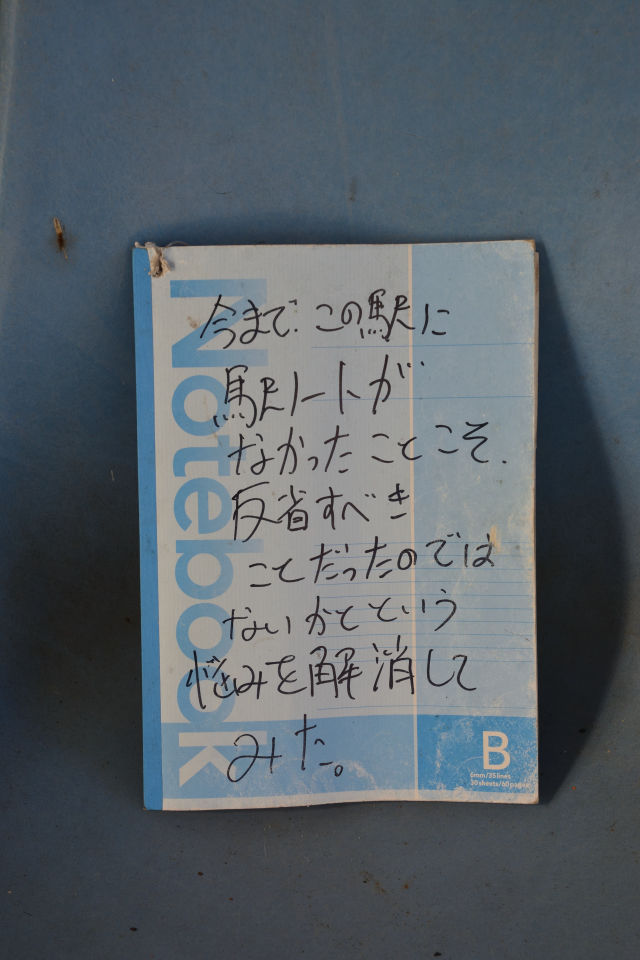 今まで、この駅に
駅ノートが
なかったことこそ、
反省すべき
ことだったのでは
ないかとという
悩みを解消して
みた。
Notebook
B
6mm/35lines
30sheets/60pages